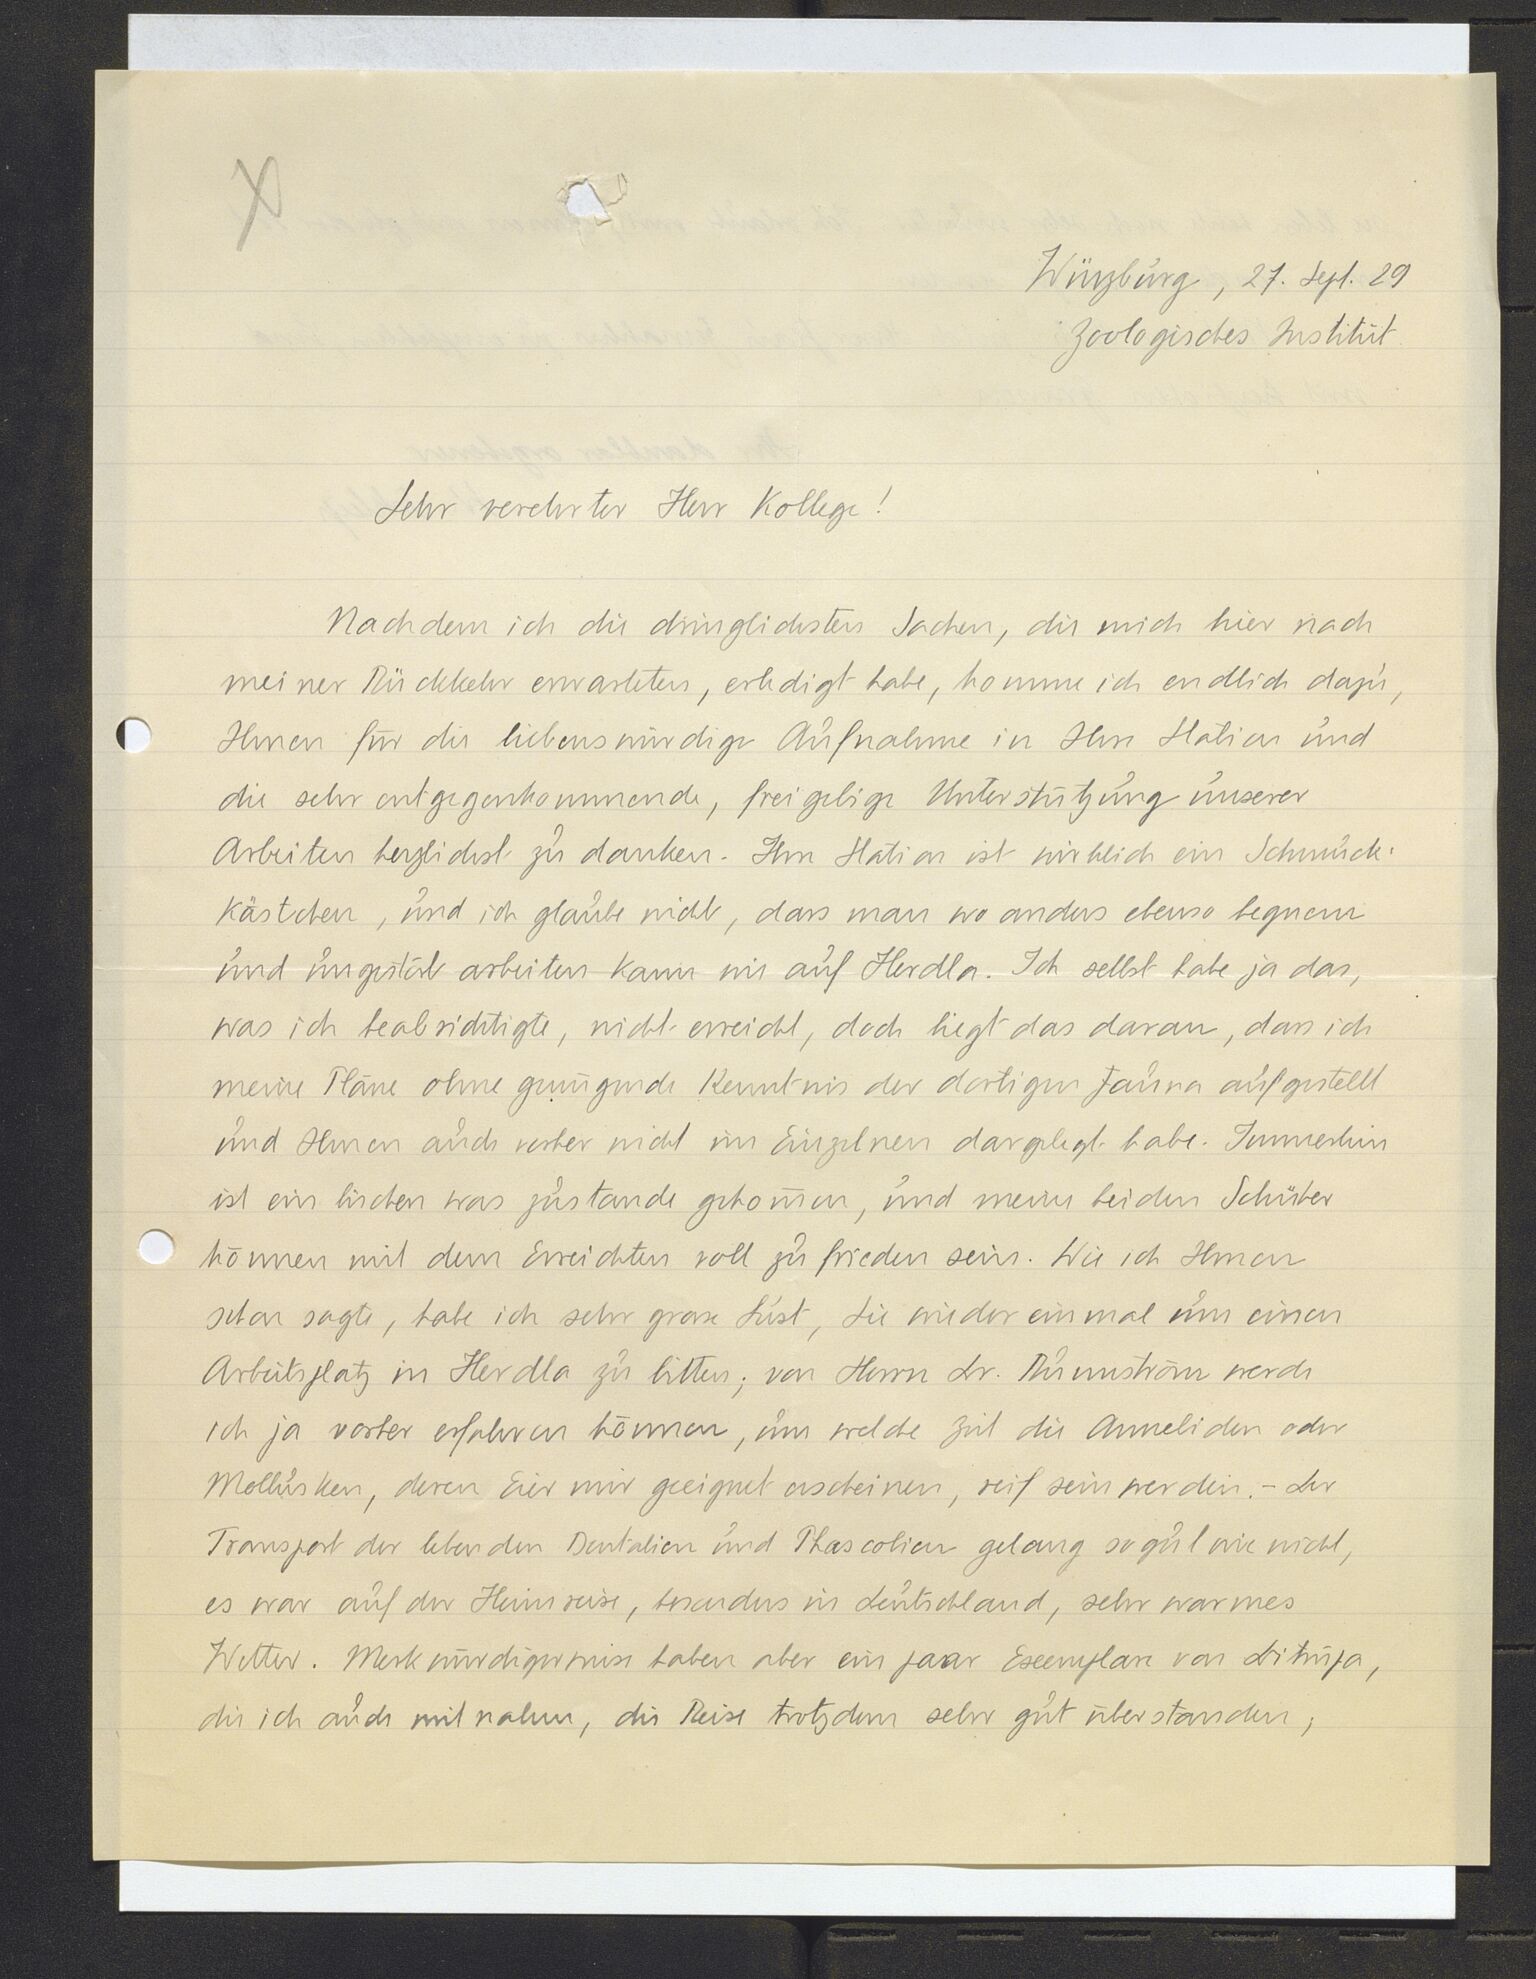 Würzburg, 27. Sept. 29
Zoologisches Institut.
Sehr verehrter Herr Kollege!
Nachdem ich die dringlichsten Sachen, die mich hier nach
meiner Rückkehr erwarteten, erledigt habe, komme ich endlich dazu,
Ihnen für die liebenswürdige Aufnahme in Ihrer Station und
die sehr entgegenkommende, freigebige Unterstützung unserer
Arbeiten herzlichst zu danken. Ihre Station ist wirklich ein Schmuck-
kästchen, und ich glaube nicht, dass man wo anders ebenso bequem
und ungestört arbeiten kann wie auf Herdla. Ich selbst habe ja das,
was ich beabsichtigte, nicht erreicht, doch liegt das daran, dass ich
meine Pläne ohne genügende Kenntnis der dortigen Fauna aufgestellt
und Ihnen auch vorher nicht im Einzelnen dargelegt habe. Immerhin
ist ein bischen was zustande gekom̅en, und meine beiden Schüler
können mit dem Erreichten voll zufrieden sein. Wie ich Ihnen
schon sagte, habe ich sehr grosse Lust, Sie wieder einmal um einen
Arbeitsplatz in Herdla zu bitten; von Herrn Dr. Runnström werde
ich ja vorher erfahren können, um welche Zeit die Anneliden oder
Mollusken, deren Eier mir geeignet erscheinen, reif sein werden. – Der
Transport der lebenden Dentalien und Phascolien gelang so gut wie nicht,
es war auf der Heimreise, besonders in Deutschland, sehr warmes
Wetter. Merkwürdigerweise haben aber ein paar Exemplare von Ditrupa,
die ich auch mitnahm, die Reise trotzdem sehr gut überstanden;